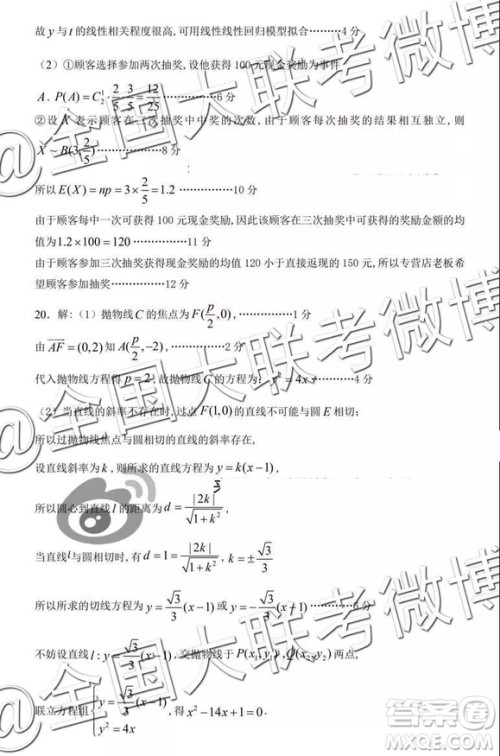 故 y 与 t 的线性相关程度很高,可用线性线性回归模型拟合………4 分
(2) ①顾客选择参加两次抽奖,设他获得 100 元现金奖励为事件
A. P(A)=C₂¹·2/5·3/5=12/25 ……………6 分
②设 X 表示顾客在三次抽奖中中奖的次数,由于顾客每次抽奖的结果相互独立,则
X~B(3,2/5) ………………8 分
所以 E(X)=np=3×2/5=1.2 ……………10 分
由于顾客每中一次可获得 100 元现金奖励,因此该顾客在三次抽奖中可获得的奖励金额的均
值为1.2×100=120 ……………11 分
由于顾客参加三次抽奖获得现金奖励的均值 120 小于直接返现的 150 元,所以专营店老板希
望顾客参加抽奖……………12 分
20. 解:(1) 抛物线 C 的焦点为 F(p/2,0),……………1 分
由 AF=(0,2) 知 A(p/2,-2),……………2 分
代入抛物线方程得 p=2,故抛物线 C 的方程为: y²=4x ……………4 分
(2) 当直线的斜率不存在时,过点 F(1,0) 的直线不可能与圆 E 相切;
所以过抛物线焦点与圆相切的直线的斜率存在,
设直线斜率为 k ,则所求的直线方程为 y=k(x-1),
所以圆心到直线 l 的距离为 d=|2k|/√(1+k²),
当直线 l 与圆相切时,有 d=1=|2k|/√(1+k²), k=±√3/3
所以所求的切线方程为 y=√3/3(x-1) 或 y=-√3/3(x-1) …………6 分
不妨设直线 l:y=√3/3(x-1),交抛物线于 P(x₁,y₁),Q(x₂,y₂) 两点,
联立方程组{y=√3/3(x-1) y²=4x ,得 x²-14x+1=0.
@全国大联考微博
@全国大联考微博
@全国大联考微博
答案圈
MXQE.COM